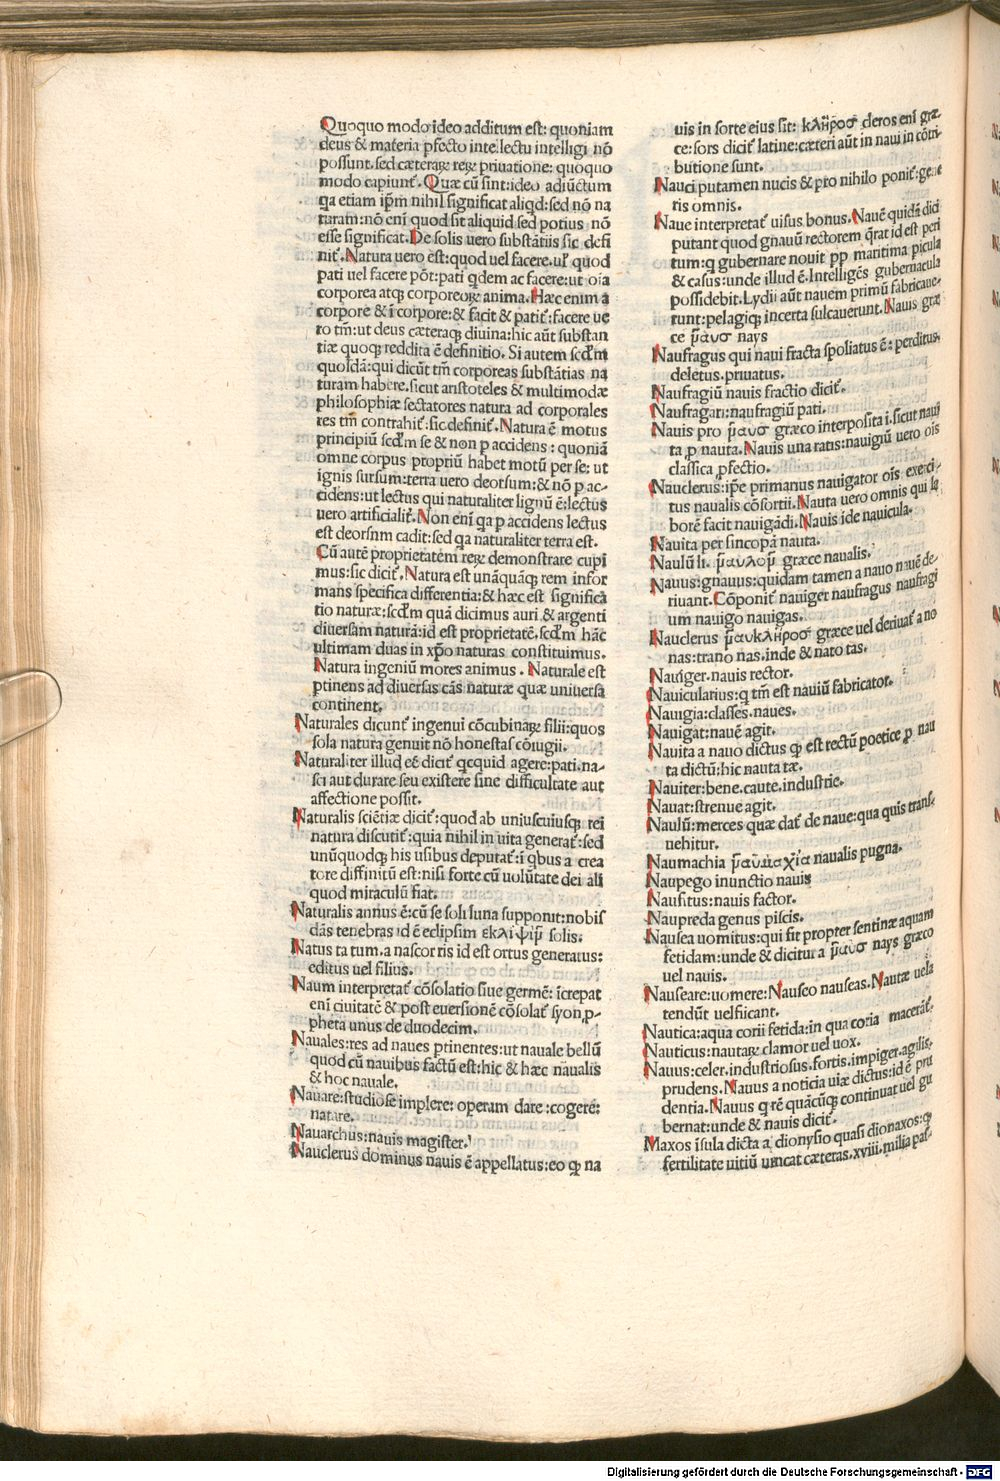 Quoquo modo ideo additum est: quoniam
deus & materia ꝑfecto intellectu intelligi nō
possunt. sed cæterarꝫ rerꝫ priuatione: quoquo
modo capiunt᷑. Quæ cū sint: ideo adiūctum
qa etiam ip̄m nihil significat aliqd: sed nō na
turam: nō eni quod sit aliquid sed potius nō
esse significat. De solis uero substātiis sic defi
nit᷑. Natura uero est: quod uel facere. uł quod
pati uel facere pōt: pati qdem ac facere: ut oīa
corporea atqꝫ corporeorꝫ anima. Hæc enim ī
corpore & ī corpore: & facit & patit᷑: facere ue
ro tm̄: ut deus cæteraqꝫ diuina: hic aūt substan
tiæ quoqꝫ reddita ē definitio. Si autem scd̄m
quosdā: qui dicūt tm̄ corporeas substātias na
turam habere. sicut aristoteles & multimodæ
philosophiæ sectatores natura ad corporales
res tm̄ contrahit᷑: sic definit᷑. Natura ē motus
principiū scd̄m se & non p accidens: quoniā
omne corpus propriū habet motū per se: ut
ignis sursum: terra uero deorsum: & nō p ac-
cidens: ut lectus qui naturaliter lignū ē: lectus
uero artificialit᷑. Non enī qa p accidens lectus
est deorsum cadit: sed qa naturaliter terra est.
Cū autē proprietatem rerꝫ demonstrare cupi
mus: sic dicit᷑. Natura est unāquāqꝫ rem infor
mans specifica differentia: & hæc est significa
tio naturæ: scd̄m quā dicimus auri & argenti
diuersam naturā: id est proprietatē. scd̄m hāc
ultimam duas in xp̄o naturas constituimus.
Natura ingeniū mores animus. Naturale est
ptinens ad diuersas cās naturæ quæ uniuersa
continent.
Naturales dicunt᷑ ingenui cōcubinarꝫ filii: quos
sola natura genuit nō honestas cōiugii.
Naturaliter illud eē dicit᷑ qcquid agere: pati. na-
sci aut durare seu existere sine difficultate aut
affectione possit.
Naturalis sciētiæ dicit᷑: quod ab uniuscuiusqꝫ rei
natura discutit᷑: quia nihil in uita generat᷑: sed
unūquodqꝫ his usibus deputat᷑: ī qbus a crea
tore diffinitū est: nisi forte cū uolūtate dei ali
quod miraculū fiat.
Naturalis annus ē: cū se soli luna supponit: nobis
dās tenebras id ē eclipsim εκλιψιμ̄ solis.
Natus ta tum. a nascor ris id est ortus generatus:
editus uel filius.
Naum interpretat᷑ cōsolatio siue germē: īcrepat
enī ciuitatē & post euersionē cōsolat᷑ syon. ꝓ-
pheta unus de duodecim.
Nauales: res ad naues ptinentes: ut nauale bellū
quod cū nauibus factū est: hic & hæc naualis
& hoc nauale.
Nauare: studiose implere: operam dare: cogere:
natare.
Nauarchus: nauis magister.
Nauclerus dominus nauis ē appellatus: eo ꝙ na
uis in sorte eius sit: κλῆρος cleros enī græ-
ce: sors dicit᷑ latine: cæteri aūt in naui in cōtri-
butione sunt.
Nauci putamen nucis & pro nihilo ponit᷑: gene
ris omnis.
Naue interpretat᷑ uisus bonus. Nauē quidā dici
putant quod gnauū rectorem qrat id est peri
tum: q gubernare nouit pp maritima picula
& casus: unde illud ē. Intelligēs gubernacula
possidebit. Lydii aūt nauem primū fabricaue-
runt: pelagiqꝫ incerta sulcauerunt. Nauis græ
ce ναυσ nays
Naufragus qui naui fracta spoliatus ē: perditus.
deletus. priuatus.
Naufragiū nauis fractio dicit᷑.
Naufragari: naufragiū pati.
Nauis pro ναυσ græco interposita i. sicut naui
ta ꝓ nauta. Nauis una ratis: nauigiū uero oīs
classica ꝓfectio.
Nauclerus: ip̄e primarius nauigator oīs exerci-
tus naualis cōsortii. Nauta uero omnis qui la
borē facit nauigādi. Nauis īde nauicula.
Nauita per sincopā nauta.
Naulū li. ναυλον græce naualis.
Nauus: gnauus: quidam tamen a nauo nauē de-
riuant. Cōponit᷑ nauiger naufragus naufragi
um nauigo nauigas.
Nauclerus ναυκλῆρος græce uel deriuat᷑ a no
nas: trano nas. inde & nato tas.
Nauiger. nauis rector.
Nauicularius: q tm̄ est nauiū fabricator.
Nauigia: classes. naues.
Nauigat: nauē agit.
Nauita a nauo dictus ꝙ est rectū poetice ꝓ nau
ta dictū: hic nauta tæ.
Nauiter: bene. caute. industrie.
Nauat: strenue agit.
Naulū: merces quæ dat᷑ de naue: qua quis trans-
uehitur.
Naumachia ναυμαχία naualis pugna.
Naupego inunctio nauis
Nausitus: nauis factor.
Naupreda genus piscis.
Nausea uomitus: qui fit propter sentinæ aquam
fetidam: unde & dicitur a ναυσ nays græco
uel nauis.
Nauseare: uomere: Nauseo nauseas. Nautæ uela
tendūt uelficant.
Nautica: aqua corii fetida: in qua coria macerāt᷑.
Nauticus: nautarꝫ clamor uel uox.
Nauus: celer. industriosus. fortis. impiger. agilis.
prudens. Nauus a noticia uiæ dictus: id ē pru
dentia. Nauus q rē quācūqꝫ continuat uel gu
bernat: unde & nauis dicit᷑.
Naxos īsula dicta a dionysio quasi dionaxos: ꝙ
fertilitate uitiū uincat cæteras. xviii. milia pas-
Digitalisierung gefördert durch die Deutsche Forschungsgemeinschaft - DFG